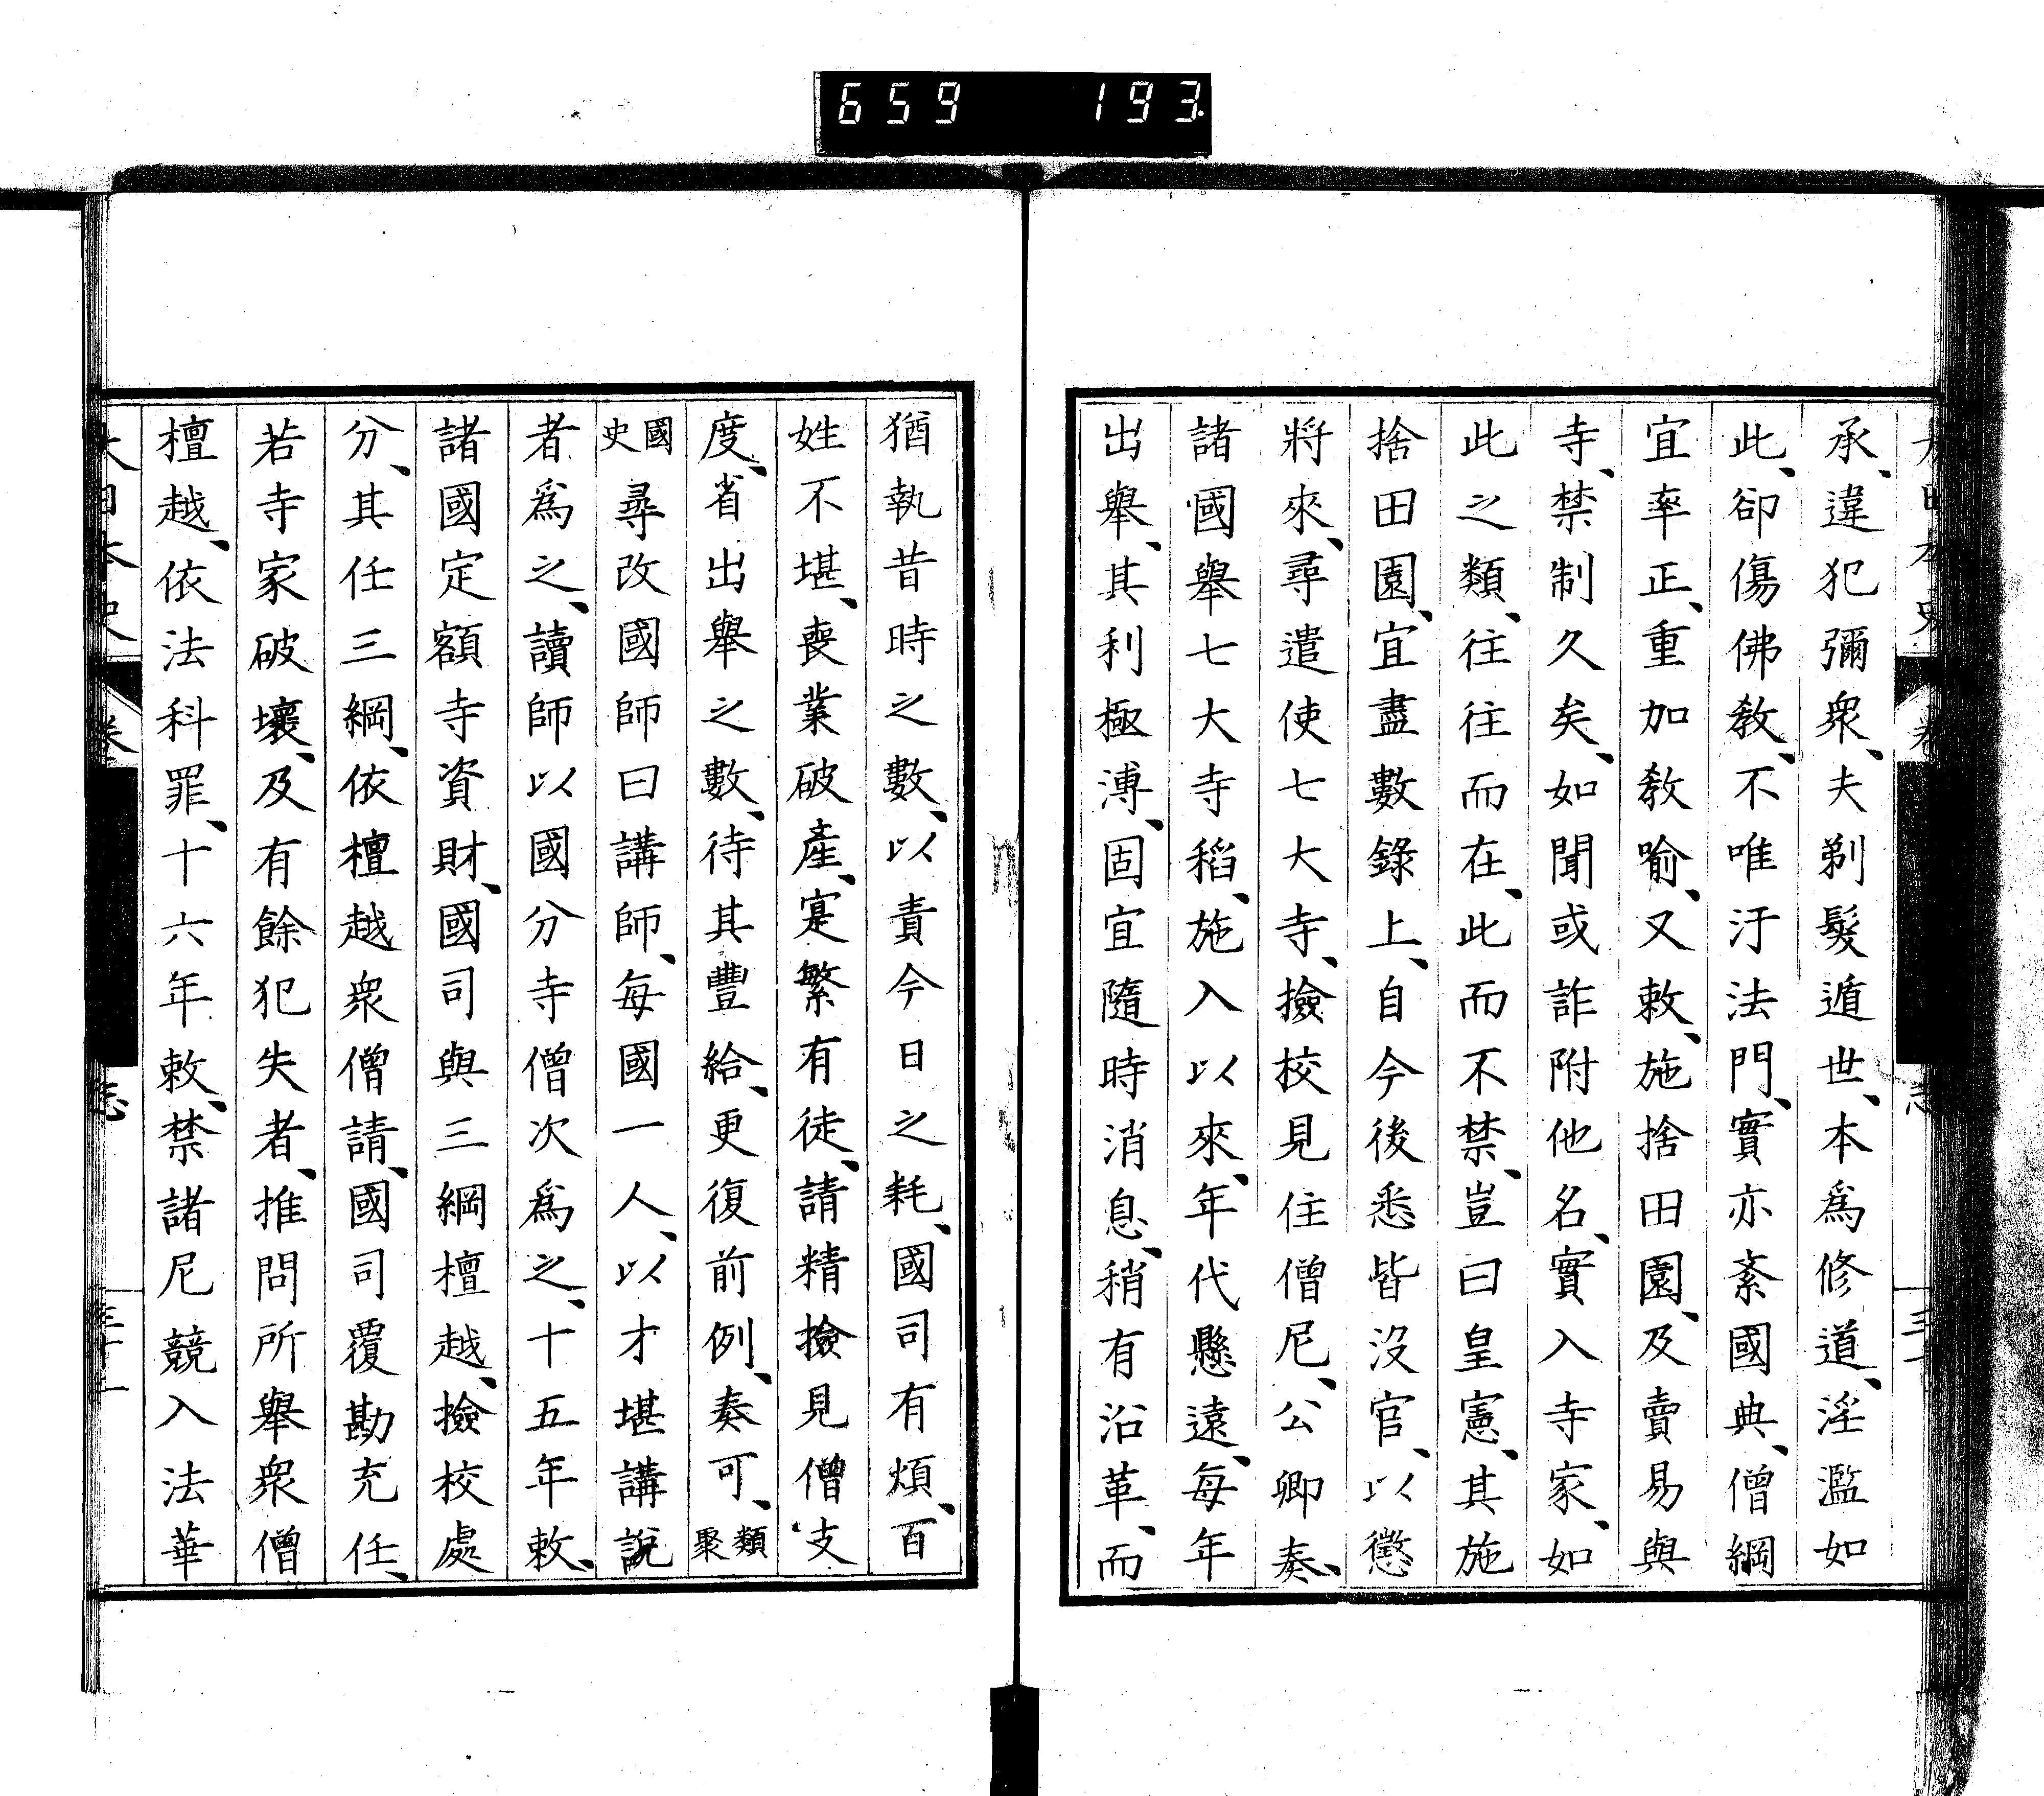 659 193.
大日本史
志
承、違犯彌衆、夫剃髮遁世、本爲修道、淫濫如
此、卻傷佛敎、不唯汙法門、實亦紊國典、僧綱
宜率正、重加敎喻、又敕、施捨田園、及賣易與
寺、禁制久矣、如聞或詐附他名、實入寺家、如
此之類、往往而在、此而不禁、豈曰皇憲、其施
捨田園、宜盡數錄上、自今後悉皆沒官、以懲
將來、尋遣使七大寺、撿校見住僧尼、公卿奏、
諸國舉七大寺稻、施入以來、年代懸遠、每年
出舉、其利極溥、固宜隨時消息、稍有沿革、而
猶執昔時之數、以責今日之耗、國司有煩、百
姓不堪、喪業破產、寔繁有徒、請精撿見僧支
度、省出舉之數、待其豐給、更復前例、奏可、類聚
國史尋改國師曰講師、每國一人、以才堪講說
者爲之、讀師以國分寺僧次爲之、十五年敕、
諸國定額寺資財、國司與三綱檀越、撿校處
分、其任三綱、依檀越衆僧請、國司覆勘充任、
若寺家破壞、及有餘犯失者、推問所舉衆僧
檀越、依法科罪、十六年敕、禁諸尼競入法華
大日本史
志